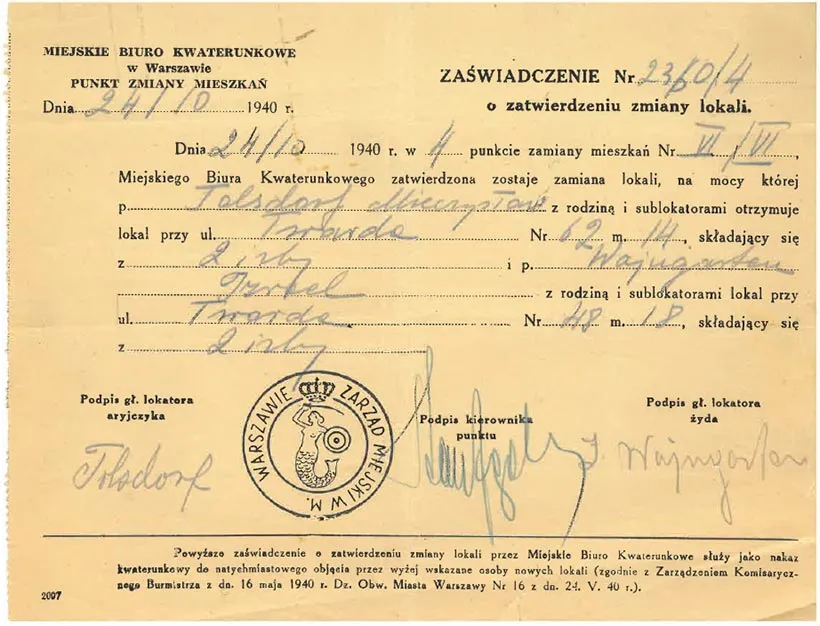 MIEJSKIE BIURO KWATERUNKOWE
w Warszawie
PUNKT ZMIANY MIESZKAŃ
Dnia 24/10 1940 r.
ZAŚWIADCZENIE Nr 2360/4
o zatwierdzeniu zmiany lokali.
Dnia 24/10 1940 r. w 4 punkcie zamiany mieszkań Nr VI/VI,
Miejskiego Biura Kwaterunkowego zatwierdzona zostaje zamiana lokali, na mocy której
p. Tolsdorf Mieczysław z rodziną i sublokatorami otrzymuje
lokal przy ul. Twarda Nr 62 m. 14, składający się
z 2 izby i p. Wajngarten
Izrael z rodziną i sublokatorami lokal przy
ul. Twarda Nr 48 m. 18, składający się
z 2 izby
Podpis gł. lokatora
aryjczyka
Tolsdorf
ZARZĄD MIEJSKI W M. WARSZAWIE
Podpis kierownika
punktu
Podpis gł. lokatora
żyda
J. Wajngarten
Powyższe zaświadczenie o zatwierdzeniu zmiany lokali przez Miejskie Biuro Kwaterunkowe służy jako nakaz
kwaterunkowy do natychmiastowego objęcia przez wyżej wskazane osoby nowych lokali (zgodnie z Zarządzeniem Komisarycz-
nego Burmistrza z dn. 16 maja 1940 r. Dz. Obw. Miasta Warszawy Nr 16 z dn. 24. V. 40 r.).
2007